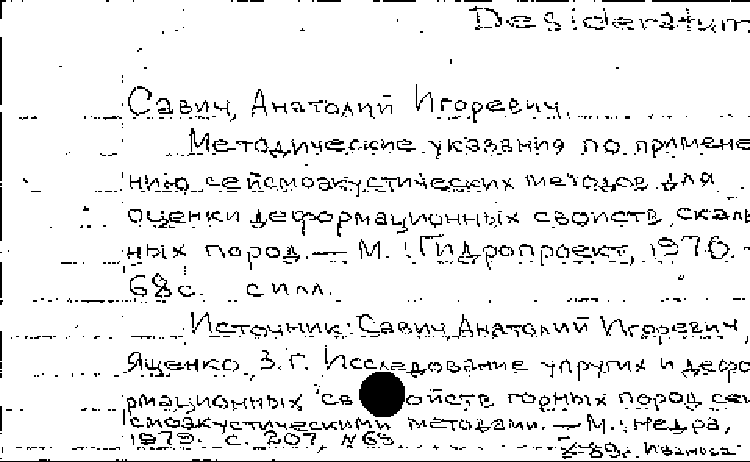 Desideratum
Савич, Анатолий Игоревич.
Методические указания по примене
нию сейсмоакустических методов для
оценки деформационных свойств скаль
ных пород. — М. : Гидропроект, 1970. -
68с. с илл.
Источник: Савич, Анатолий Игоревич,
Ященко, З.Г. Исследование упругих и дефо
рмационных св ойств горных пород сей
смоакустическими методами. — М. : Недра,
1979. с. 207, №68
Иванова